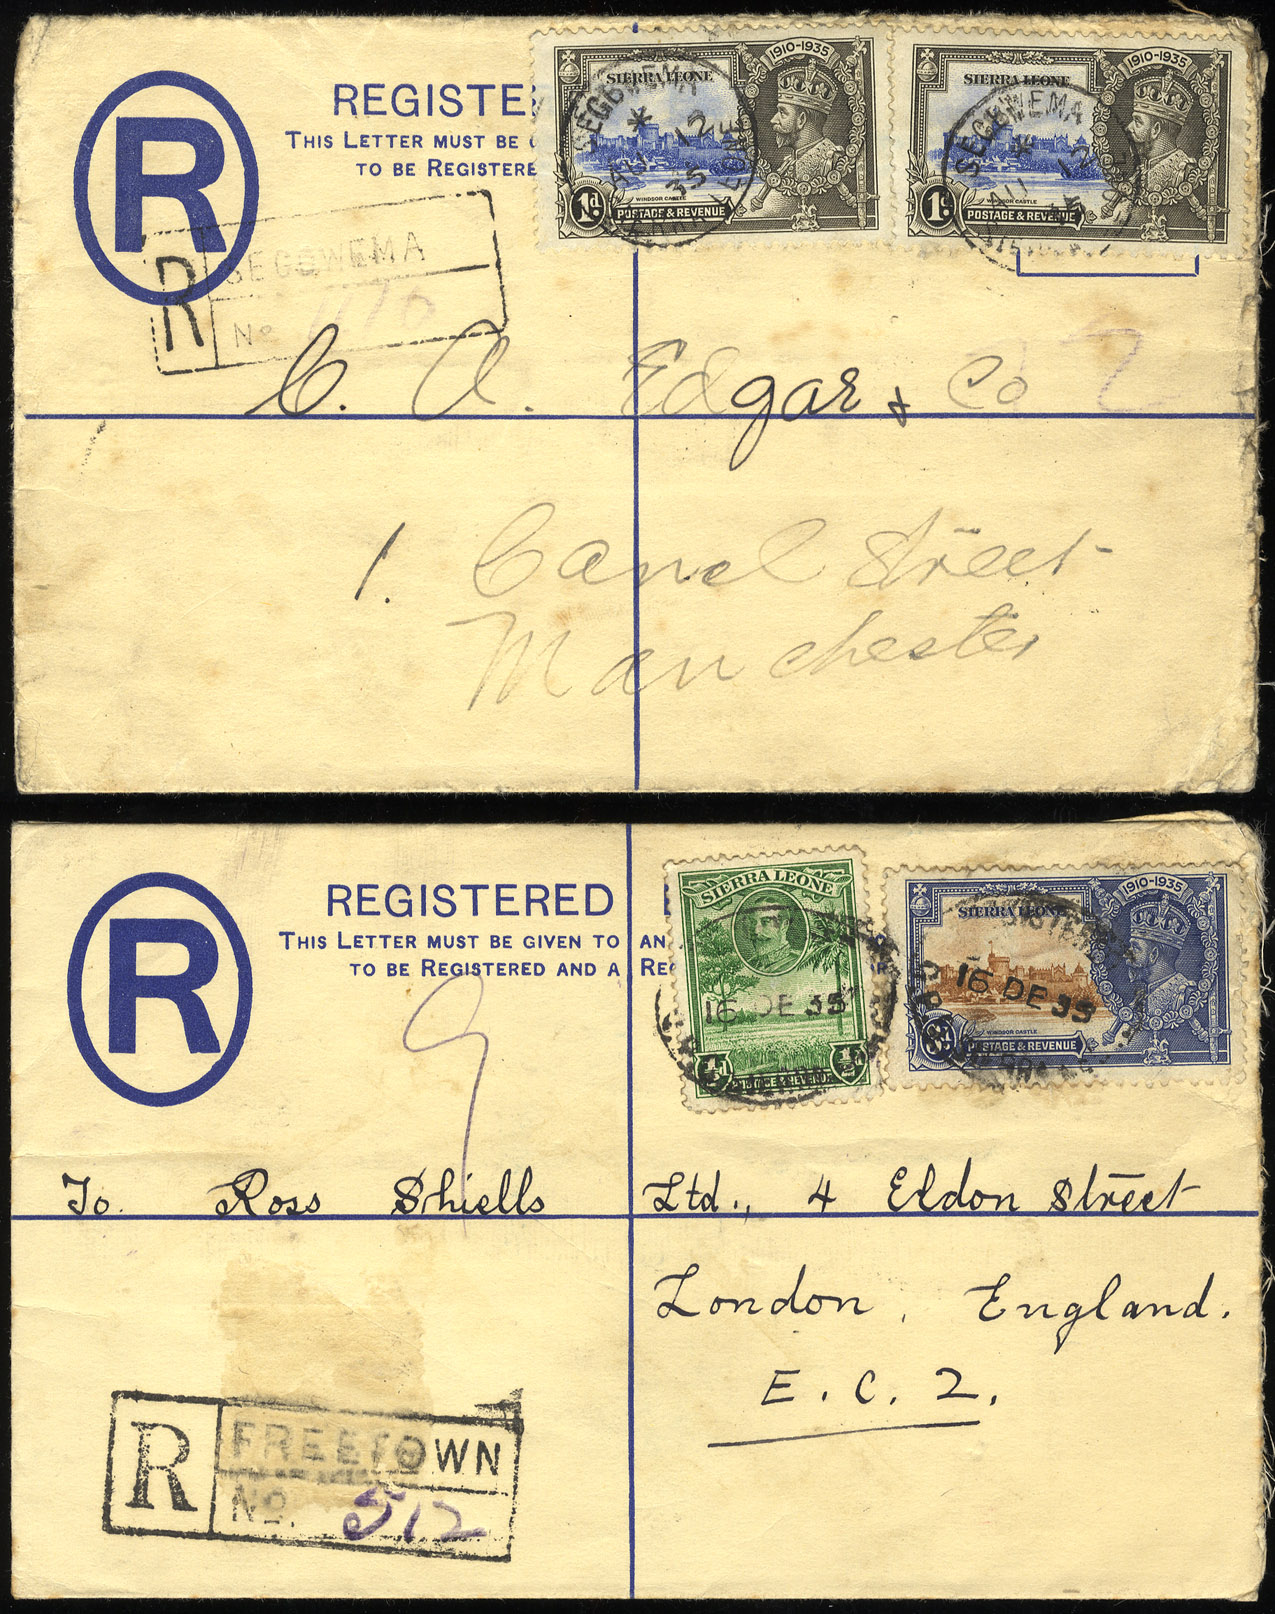 REGISTE
THIS LETTER MUST BE
TO BE REGISTERE
R
SIERRA LEONE
1910-1935
WINDSOR CASTLE
1d
POSTAGE & REVENUE
SEGBWEMA
AU 12
35
SIERRA LEONE
1910-1935
WINDSOR CASTLE
1d
POSTAGE & REVENUE
SEGBWEMA
AU 12
35
R
SEGBWEMA
No
C. A. Edgar & Co
1. Canel Street
Manchester
REGISTERED
THIS LETTER MUST BE GIVEN TO AN
TO BE REGISTERED AND A REC
R
SIERRA LEONE
½d ½d
POSTAGE & REVENUE
16 DE 35
SIERRA LEONE
1910-1935
WINDSOR CASTLE
3d
POSTAGE & REVENUE
16 DE 35
To. Ross Shiells Ltd., 4 Eldon Street
London, England.
E. C. 2.
R
FREETOWN
No. 512